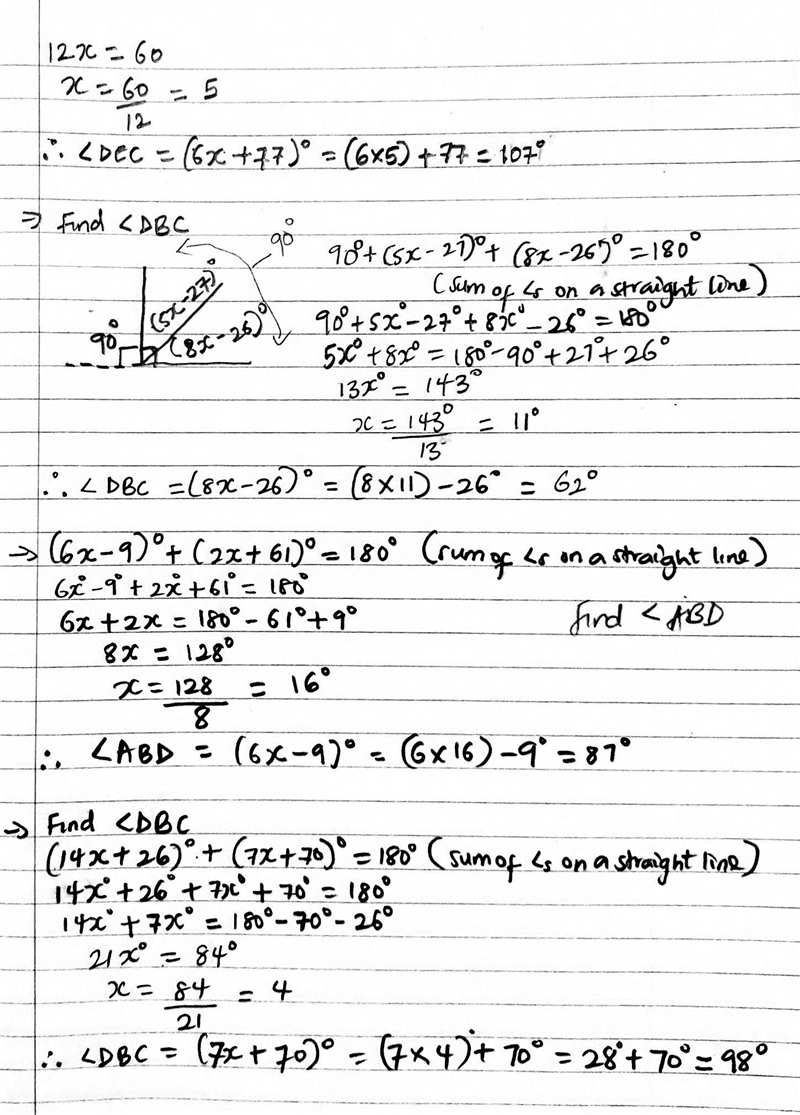 12x = 60
x = 60/12 = 5
∴ <DEC = (6x+77)° = (6×5) + 77 = 107°
⇒ Find <DBC
90°
90° + (5x-27)° + (8x-26)° = 180°
(sum of <s on a straight line)
(5x-27)°
90°
(8x-26)°
90° + 5x° - 27° + 8x° - 26° = 180°
5x° + 8x° = 180° - 90° + 27° + 26°
13x° = 143°
x = 143°/13 = 11°
∴ <DBC = (8x-26)° = (8×11) - 26° = 62°
→ (6x-9)° + (2x+61)° = 180° (sum of <s on a straight line)
6x° - 9° + 2x° + 61° = 180°
6x + 2x = 180° - 61° + 9°
find <ABD
8x = 128°
x = 128/8 = 16°
∴ <ABD = (6x-9)° = (6×16) - 9° = 87°
→ Find <DBC
(14x+26)° + (7x+70)° = 180° (sum of <s on a straight line)
14x° + 26° + 7x° + 70° = 180°
14x° + 7x° = 180° - 70° - 26°
21x° = 84°
x = 84/21 = 4
∴ <DBC = (7x+70)° = (7×4)° + 70° = 28° + 70° = 98°